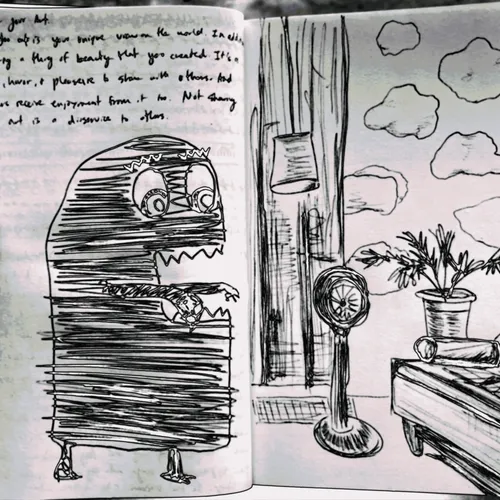 your Art.
art is your unique view on the world. In
a thing of beauty that you created. It's
honor, & pleasure to show with others. And
receive enjoyment from it too. Not sharing
art is a disservice to others.